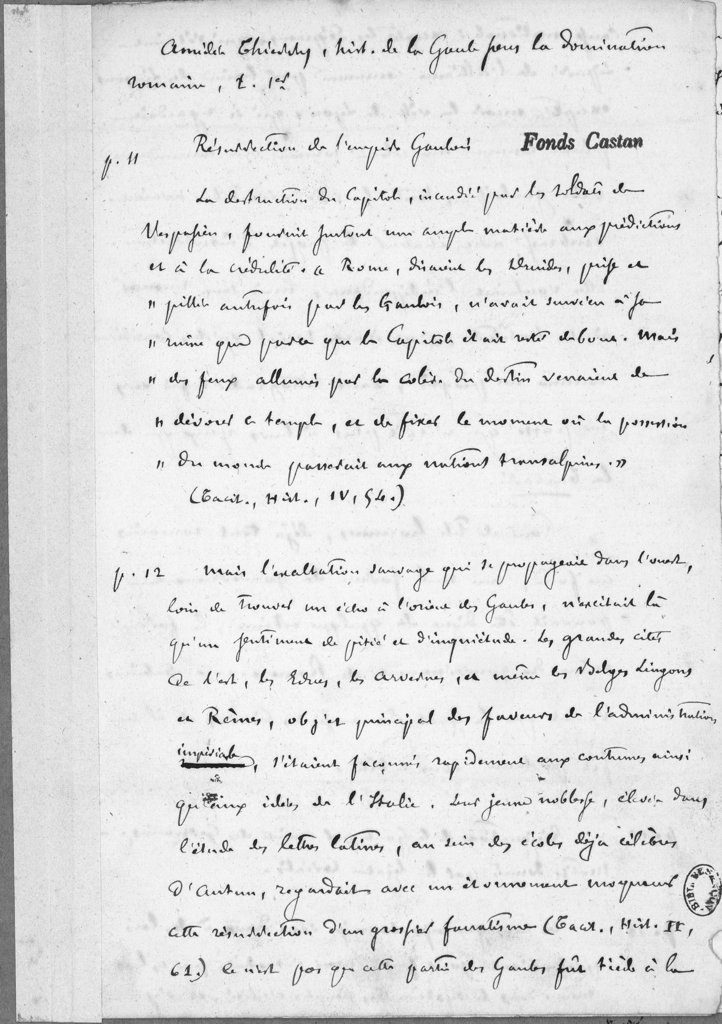 Amédée Thierry, hist. de la Gaule sous la domination
romaine, t. 1er
p. 11 Résurrection de l'empire Gaulois
Fonds Castan
La destruction du Capitole, incendié par les soldats de
Vespasien, fournit surtout une ample matière aux prédictions
et à la crédulité. « Rome, disaient les Druides, prise et
" pillée autrefois par les Gaulois, n'avait survécu à sa
" ruine que parce que le Capitole était resté debout. Mais
" des feux allumés par la colère du destin venaient de
" dévorer ce temple, et de fixer le moment où la possession
" du monde passerait aux nations transalpines. »
(Tacit., Hist., IV, 54.)
p. 12 Mais l'exaltation sauvage qui se propageait dans l'ouest,
loin de trouver un écho à l'orient des Gaules, n'excitait là
qu'un sentiment de pitié et d'inquiétude. Les grandes cités
de l'est, les Edues, les Arvernes, et même les Belges Lingons
et Rèmes, objet principal des faveurs de l'administration
impériale, s'étaient façonnés rapidement aux coutumes ainsi
qu'aux idées de l'Italie. Leur jeune noblesse, élevée dans
l'étude des lettres latines, au sein des écoles déjà célèbres
d'Autun, regardait avec un étonnement moqueur
cette résurrection d'un grossier fanatisme (Tacit., Hist. II,
61.) Ce n'est pas que cette partie des Gaules fût tiède à la